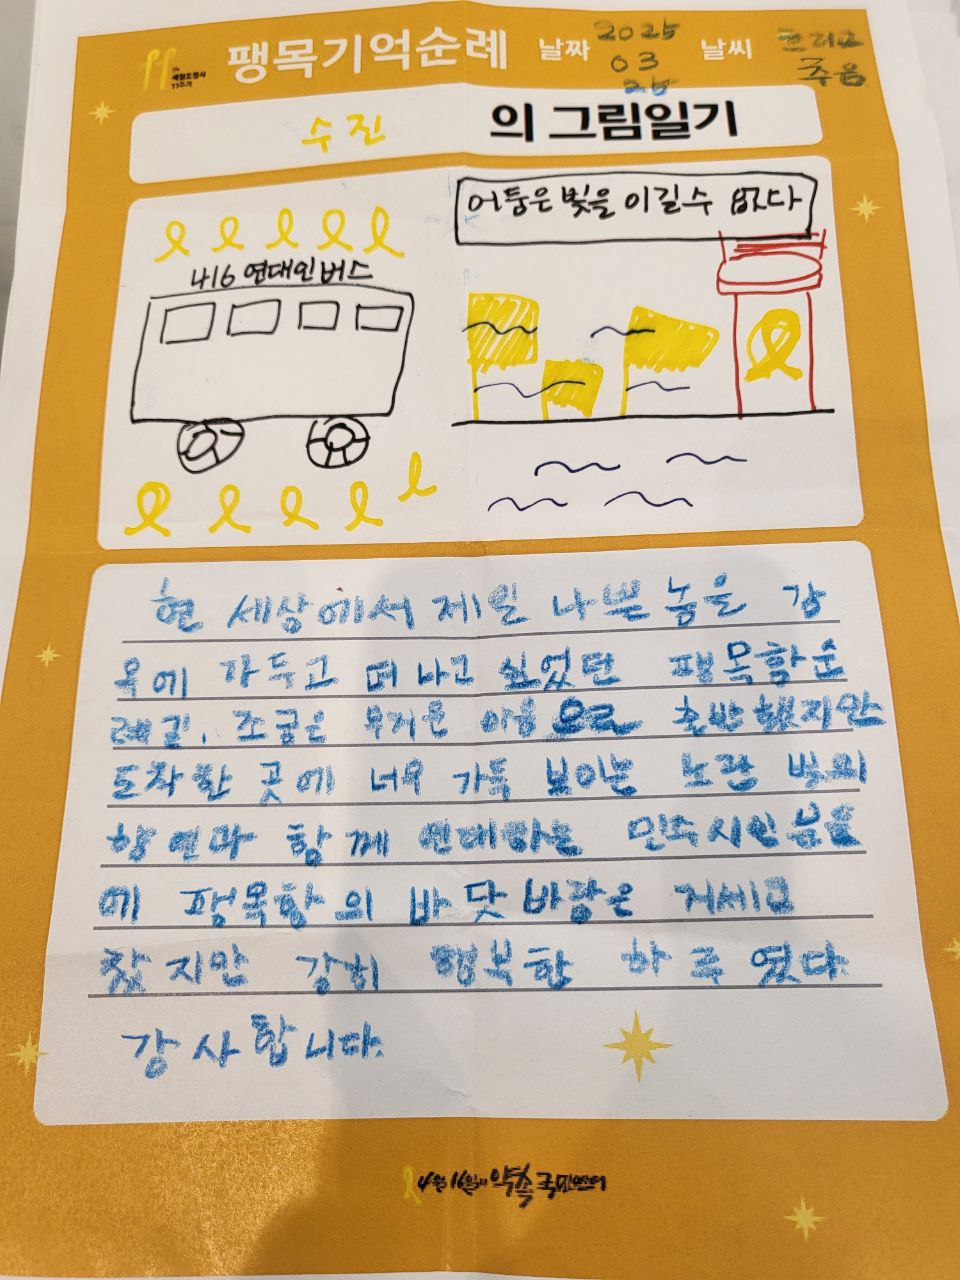 세월호참사
11주기
팽목기억순례 날짜 2025 03 날씨 흐리고 추움
수진 의 그림일기
어둠은 빛을 이길수 없다
416 연대인버스
현 세상에서 제일 나쁜 놈을 감
옥에 가두고 떠나고 싶었던 팽목항순
례길, 조금은 무거운 마음으로 출발했지만
도착한 곳에 너무 가득 보이는 노란 빛의
향연과 함께 연대하는 민주시민분들
에 팽목항의 바닷바람은 거세고
찼지만 감히 행복한 하루였다.
감사합니다.
4월16일의 약속 국민연대